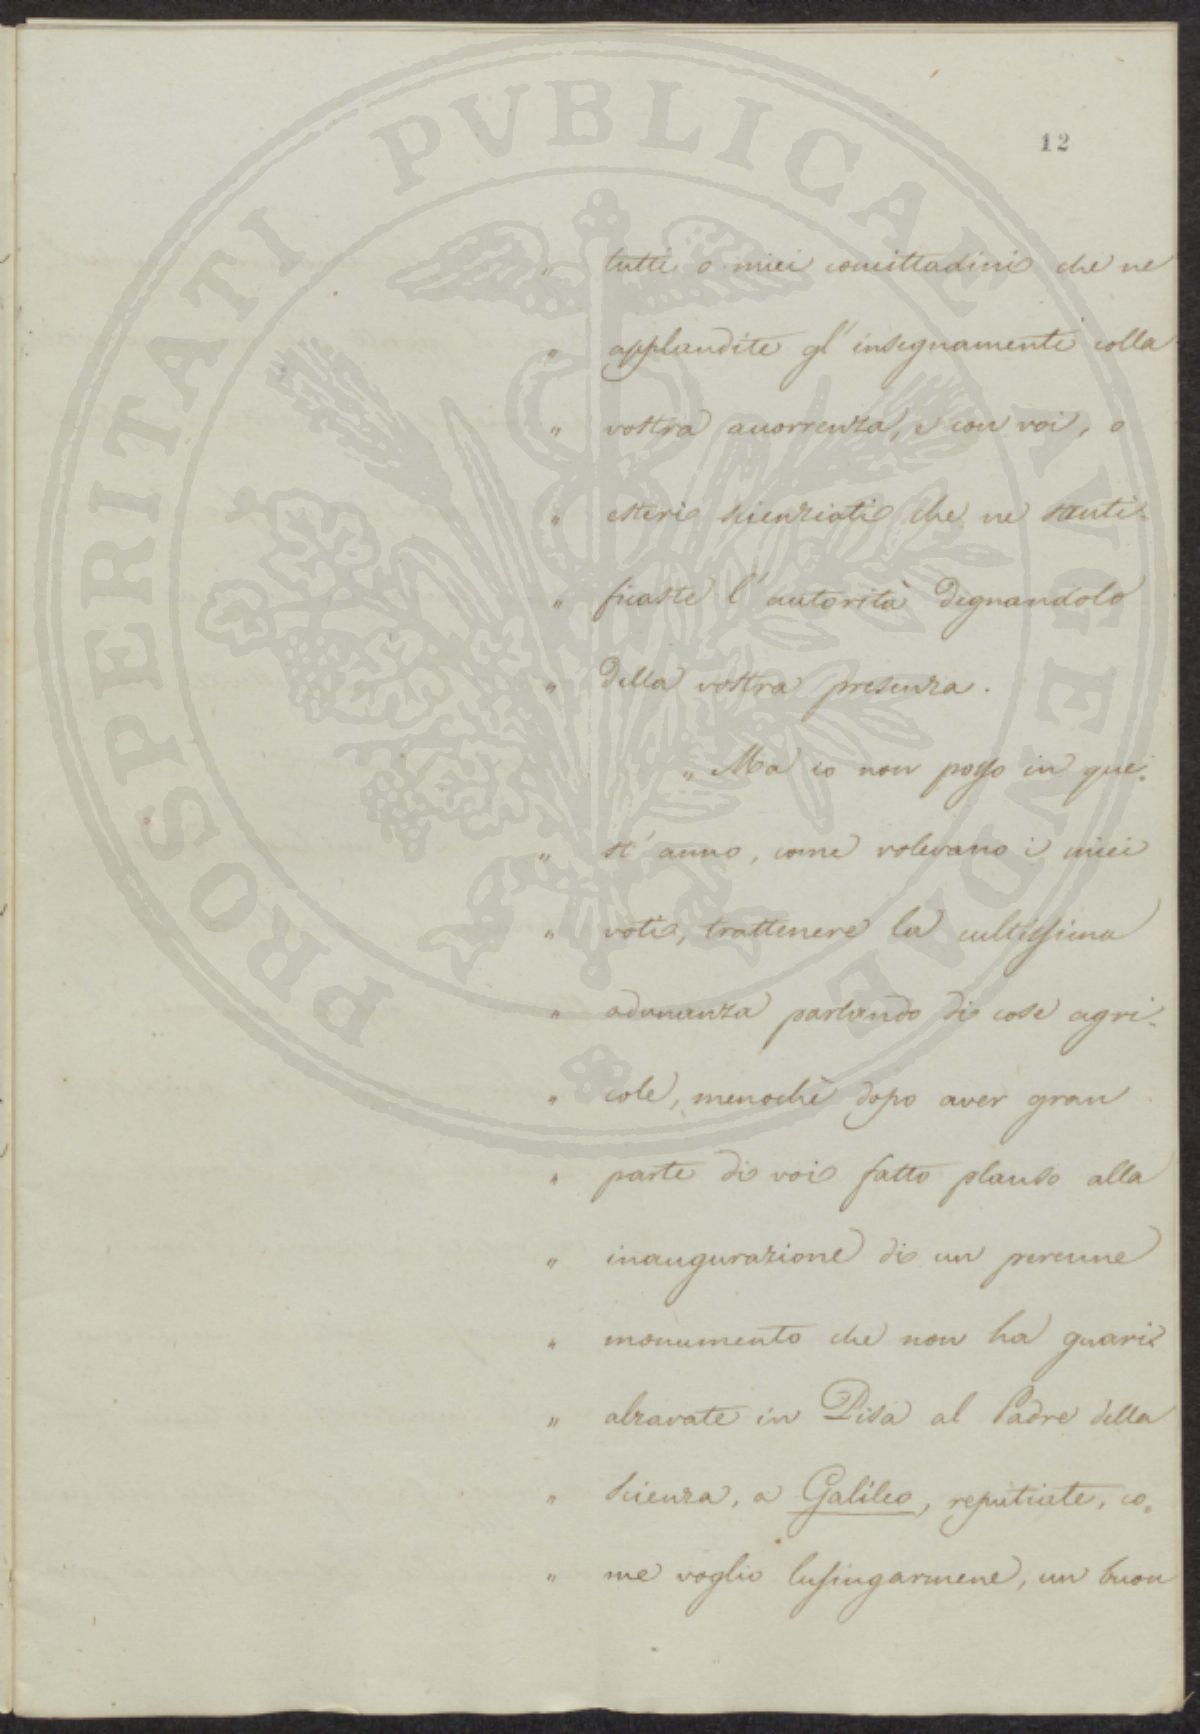 PROSPERITATI PVBLICAE AVGENDAE
12
„ tutti o miei concittadini che ne
„ applaudite gl'insegnamenti colla
„ vostra accorrenza, e con voi, o
„ esteri scienziati che ne santi-
„ ficaste l'autorità degnandolo
„ della vostra presenza.
„ Ma io non posso in que-
„ st'anno, come volevano i miei
„ voti, trattenere la cultissima
„ adunanza parlando di cose agri-
„ cole, menochè dopo aver gran
„ parte di voi fatto plauso alla
„ inaugurazione di un perenne
„ monumento che non ha guari
„ alzavate in Pisa al Padre della
„ Scienza, a Galileo, reputiate, co-
„ me voglio lusingarmene, un buon